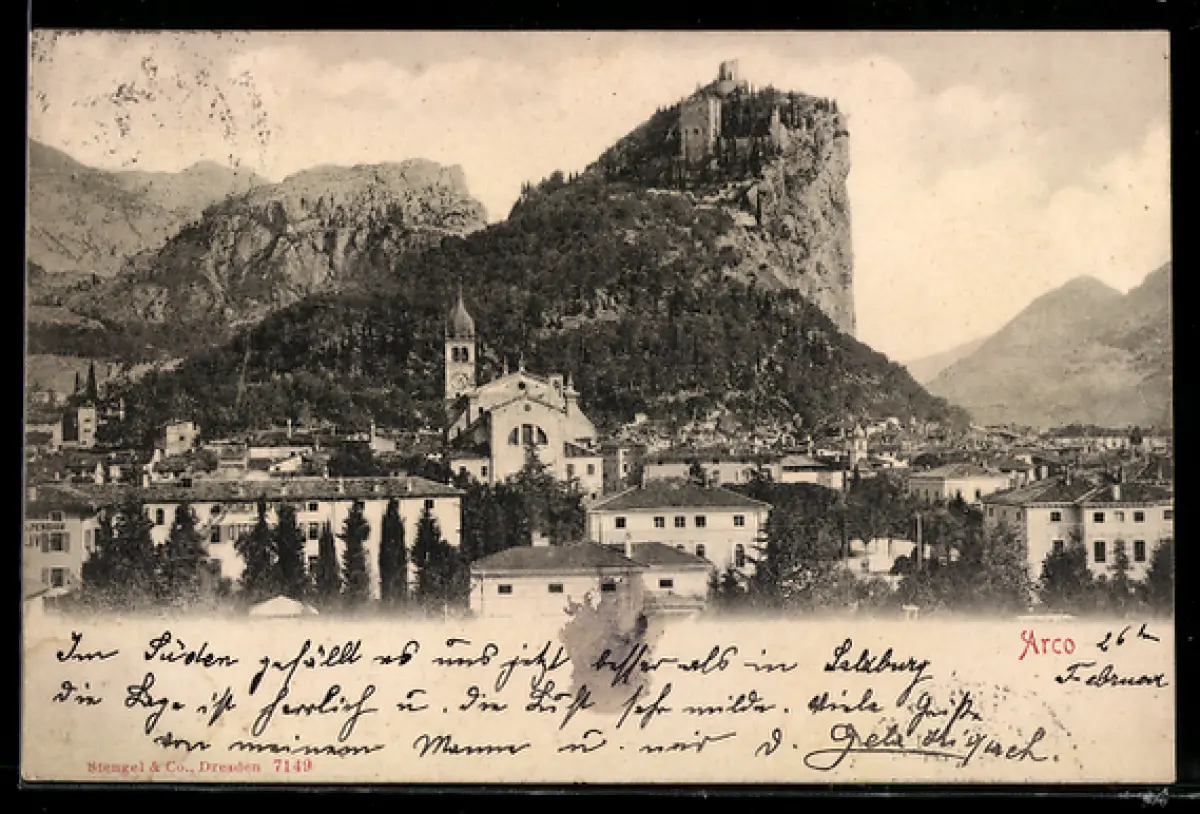 Arco 26ten
Februar
Im Süden gefällt es uns jetzt besser als in Salzburg
die Lage ist herrlich u. die Luft sehr milde. Viele Grüße
von meinem Manne u. mir d.
Stengel & Co., Dresden 7149